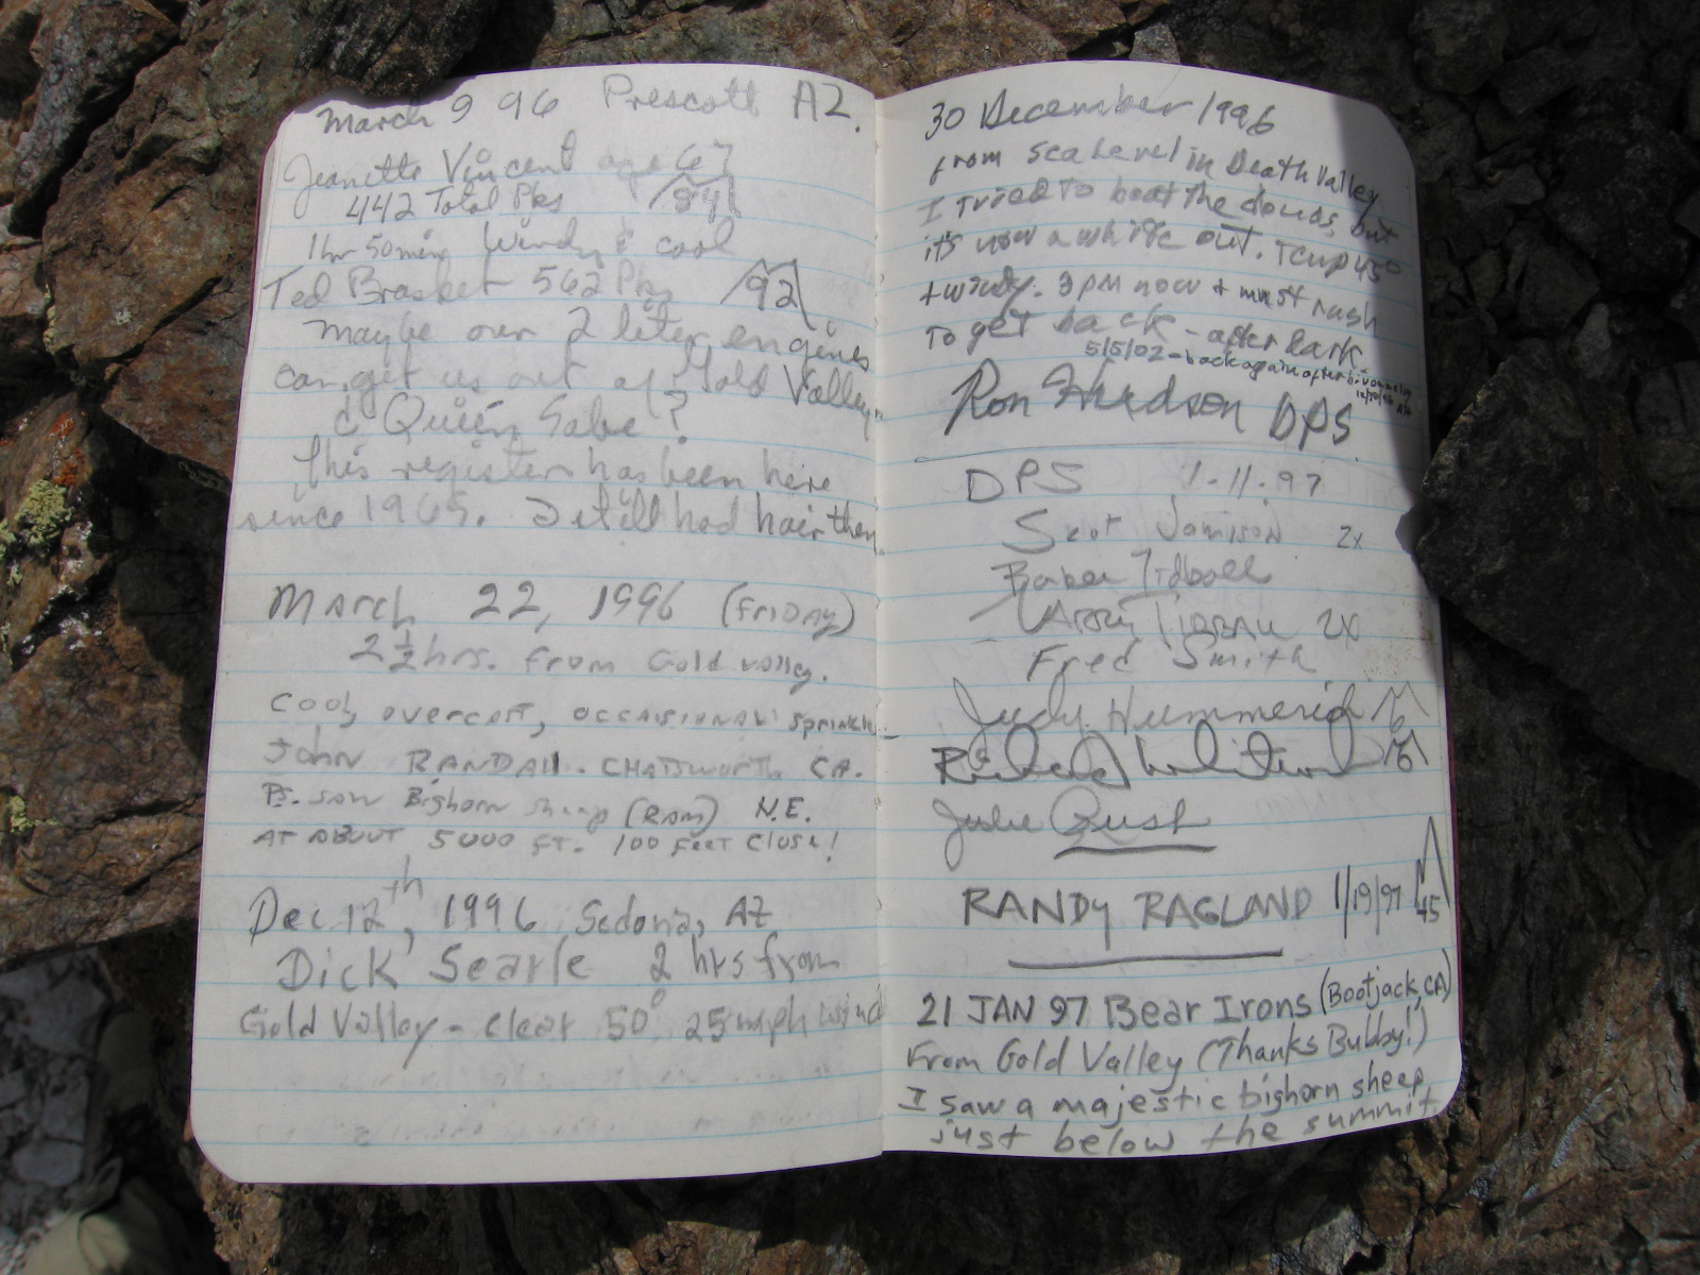 March 9 96 Prescott AZ.
Jeanette Vincent age 67
442 Total Pks 84
1hr 50min Windy & cool
Ted Brasket 562 Pks 92
maybe our 2 liter engines
can get us out of Gold Valley
¿ Quien Sabe?
This register has been here
since 1965. I still had hair then.
March 22, 1996 (Friday)
2 1/2 hrs. From Gold Valley.
Cool, overcast, occasional sprinkle
John RANDALL. CHATSWORTH CA.
Ps. saw Bighorn sheep (Ram) N.E.
AT ABOUT 5000 FT. 100 FEET CLOSE!
Dec 12th, 1996 Sedona, AZ
Dick Searle 2 hrs from
Gold Valley - clear 50° 25 mph wind
30 December 1996
from sea level in Death Valley
I tried to beat the clouds, but
it's now a white out. Temp 45°
+ windy. 3 pm now + must rush
to get back - after dark.
5/5/02 - back again after
Ron Hudson DPS.
DPS 1-11-97
Scot Jamison 2x
Barbee Tidball
Larry Tidball 2x
Fred Smith
Judy Hummerich 6
Richard Whitcomb 6
Julie Rush
RANDY RAGLAND 1/19/97 45
21 JAN 97 Bear Irons (Bootjack, CA)
From Gold Valley (Thanks Bubby!)
I saw a majestic bighorn sheep
just below the summit